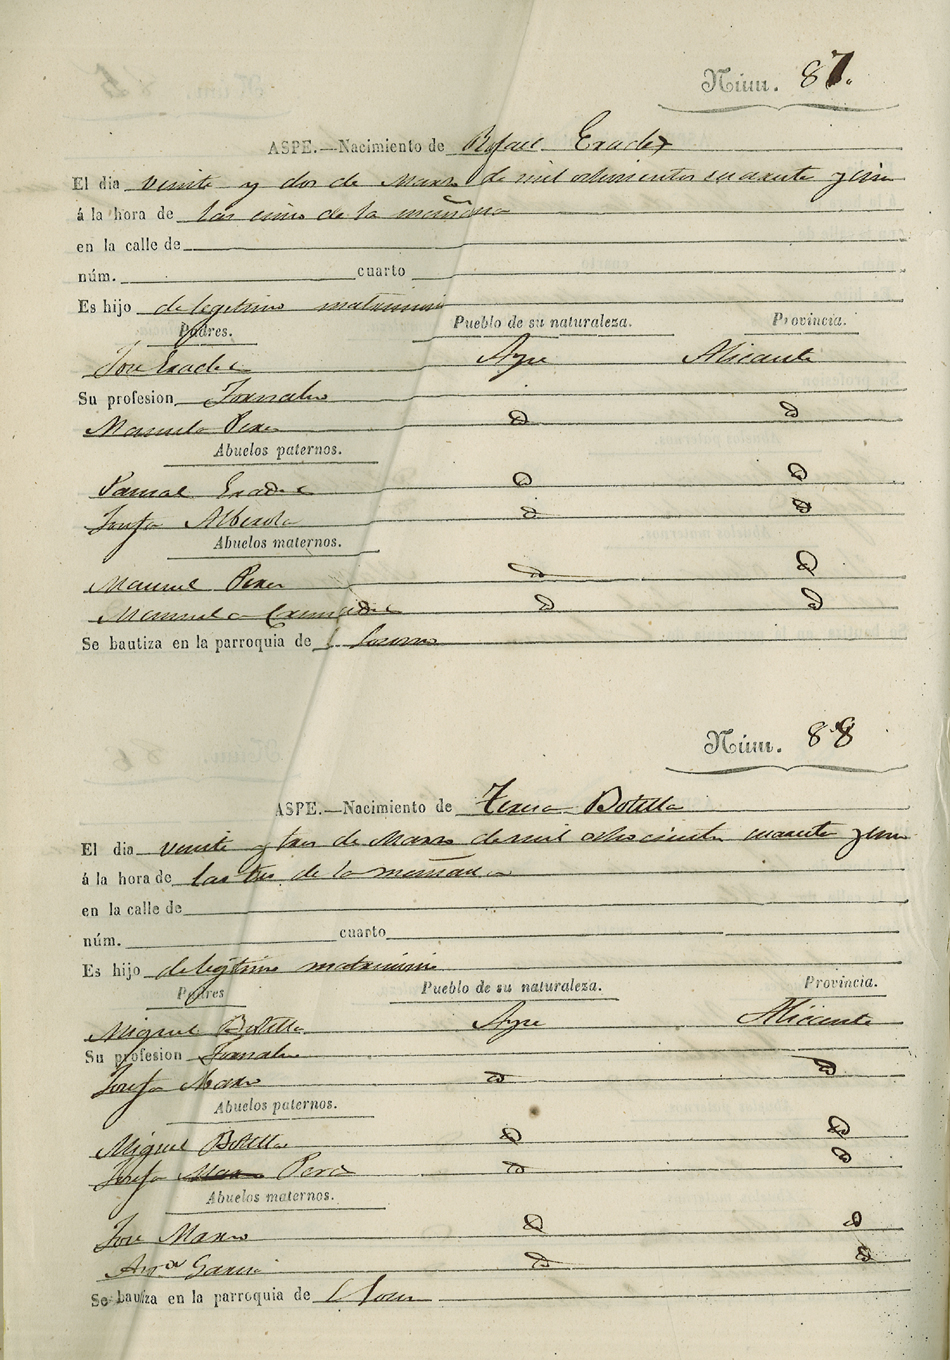 Núm. 87.
ASPE.—Nacimiento de Rafael Erades
El dia veinte y dos de Marzo de mil ochocientos cuarenta y
á la hora de las cinco de la mañana
en la calle de
núm. cuarto
Es hijo de legitimo matrimonio
Padres. Pueblo de su naturaleza. Provincia.
Jose Erades Aspe Alicante
Su profesion Jornalero
Manuela Perez
Abuelos paternos.
Pascual Erades
Josefa Alberola
Abuelos maternos.
Manuel Perez
Manuela
Se bautiza en la parroquia de
Núm. 88
ASPE.—Nacimiento de Teresa Botella
El dia veinte y tres de Marzo de mil ochocientos cuarenta y
á la hora de las tres de la mañana
en la calle de
núm. cuarto
Es hijo de legitimo matrimonio
Padres Pueblo de su naturaleza. Provincia.
Miguel Botella Aspe Alicante
Su profesion Jornalero
Josefa
Abuelos paternos.
Miguel Botella
Josefa
Abuelos maternos.
Jose
Garcia
Se bautiza en la parroquia de